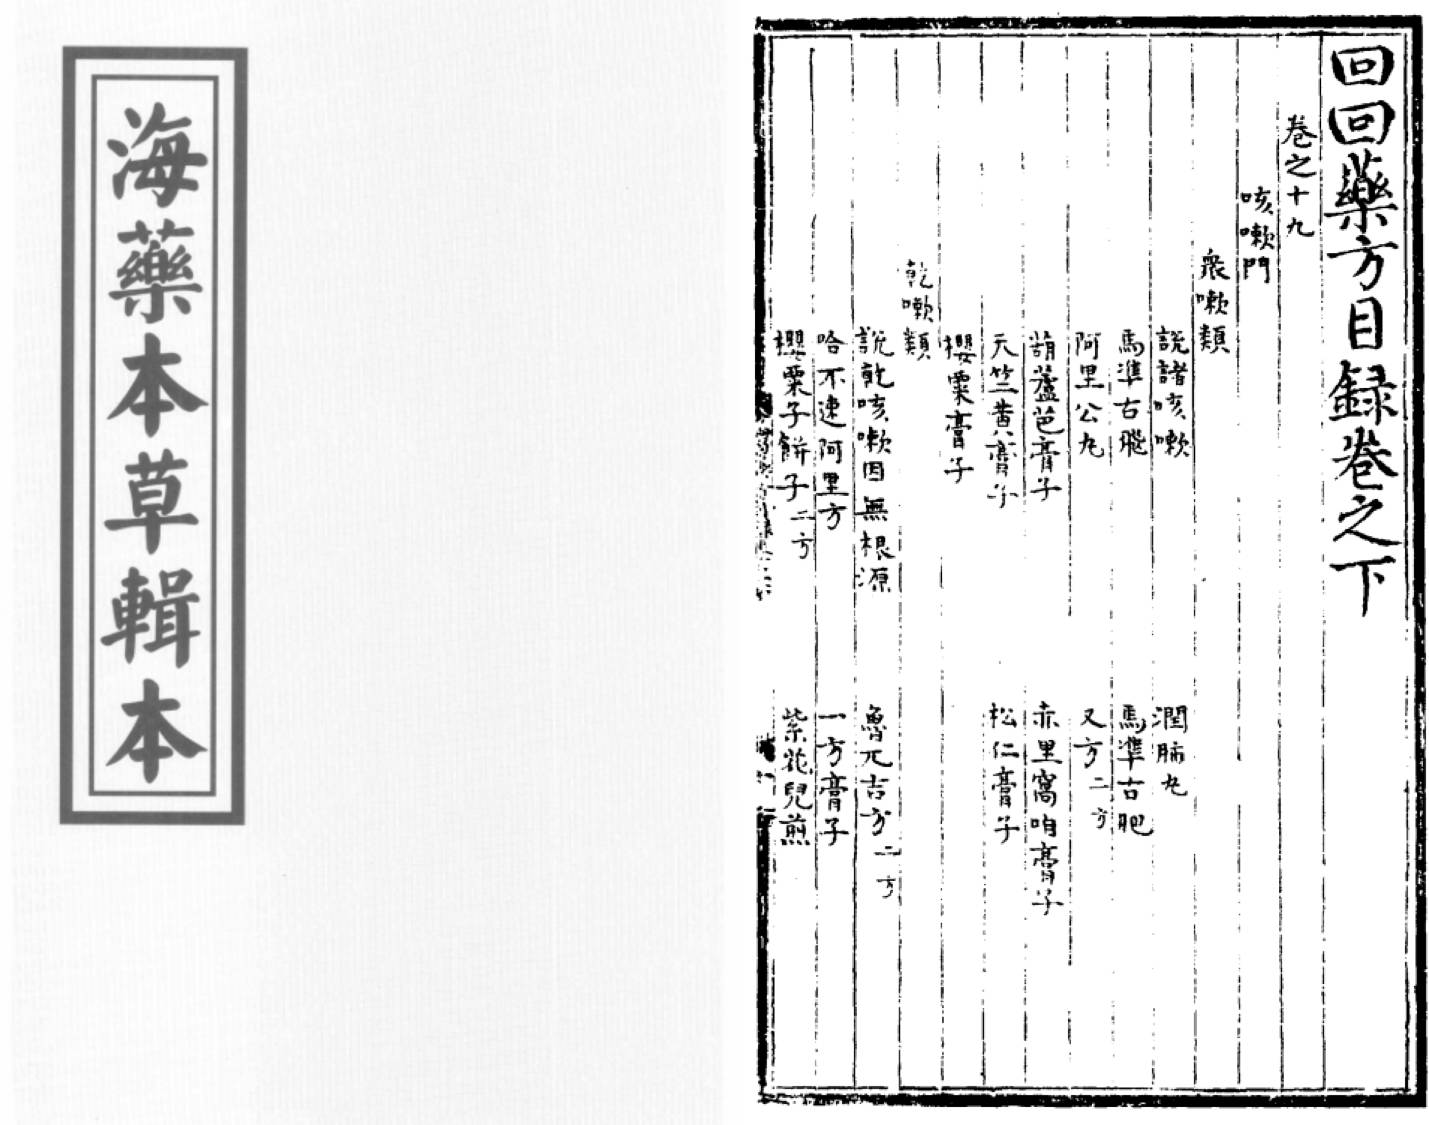 海藥本草輯本
回回藥方目録卷之下
卷之十九
咳嗽門
衆嗽類
說諸咳嗽 潤肺丸
馬準古飛 馬準古肥
阿里公丸 又方二方
葫蘆芭膏子 赤里窩咱膏子
天竺黄膏子 松仁膏子
櫻粟膏子
乾嗽類
說乾咳嗽因無根源 魯兀吉方二方
哈不速阿里方 一方膏子
櫻粟子餅子二方 紫花兒煎